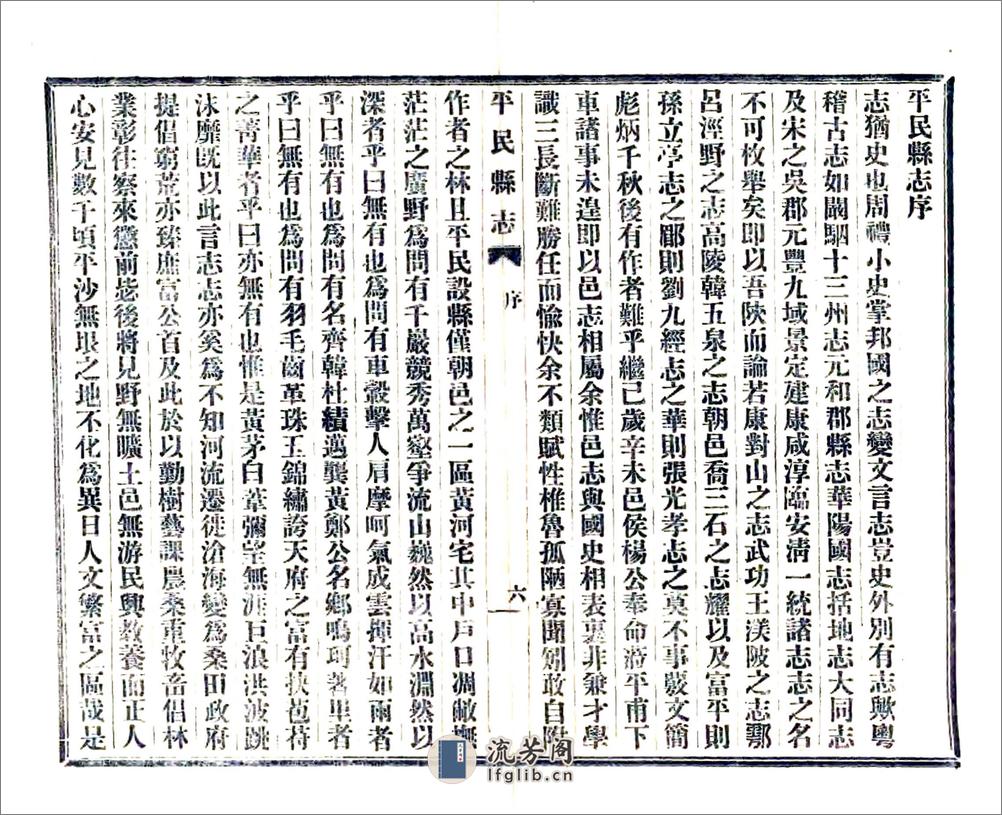 平民縣志序
志猶史也周禮小史掌邦國之志變文言志豈史外別有志歟粵
稽古志如闞駰十三州志元和郡縣志華陽國志括地志大同志
及宋之吳郡元豐九域景定建康咸淳臨安清一統諸志志之名
不可枚舉矣即以吾陝而論若康對山之志武功王渼陂之志鄠
呂涇野之志高陵韓五泉之志朝邑喬三石之志耀以及富平則
孫立亭志之郿則劉九經志之華則張光孝志之莫不事覈文簡
彪炳千秋後有作者難乎繼已歲辛未邑侯楊公奉命蒞平甫下
車諸事未遑即以邑志相屬余惟邑志與國史相表裏非兼才學
識三長斷難勝任而愉快余不類賦性椎魯孤陋寡聞矧敢自附
平民縣志 序 六
作者之林且平民設縣僅朝邑之一區黃河宅其中戶口凋敝撫
茫茫之廣野為問有千巖競秀萬壑爭流山巍然以高水淵然以
深者乎曰無有也為問有車轂擊人肩摩呵氣成雲揮汗如雨者
乎曰無有也為問有名齊韓杜績邁龔黃鄭公名鄉鳴珂著里者
乎曰無有也為問有羽毛齒革珠玉錦繡誇天府之富有挾苞苻
之菁華者乎曰亦無有也惟是黃茅白葦彌望無涯巨浪洪波跳
沫靡既以此言志志亦奚為不知河流遷徙滄海變為桑田政府
提倡窮荒亦臻庶富公首及此於以勤樹藝課農桑重牧畜倡林
業彰往察來懲前毖後將見野無曠土邑無游民興教養而正人
心安見數千頃平沙無垠之地不化為異日人文繁富之區哉是
流芳閣
lfglib.cn